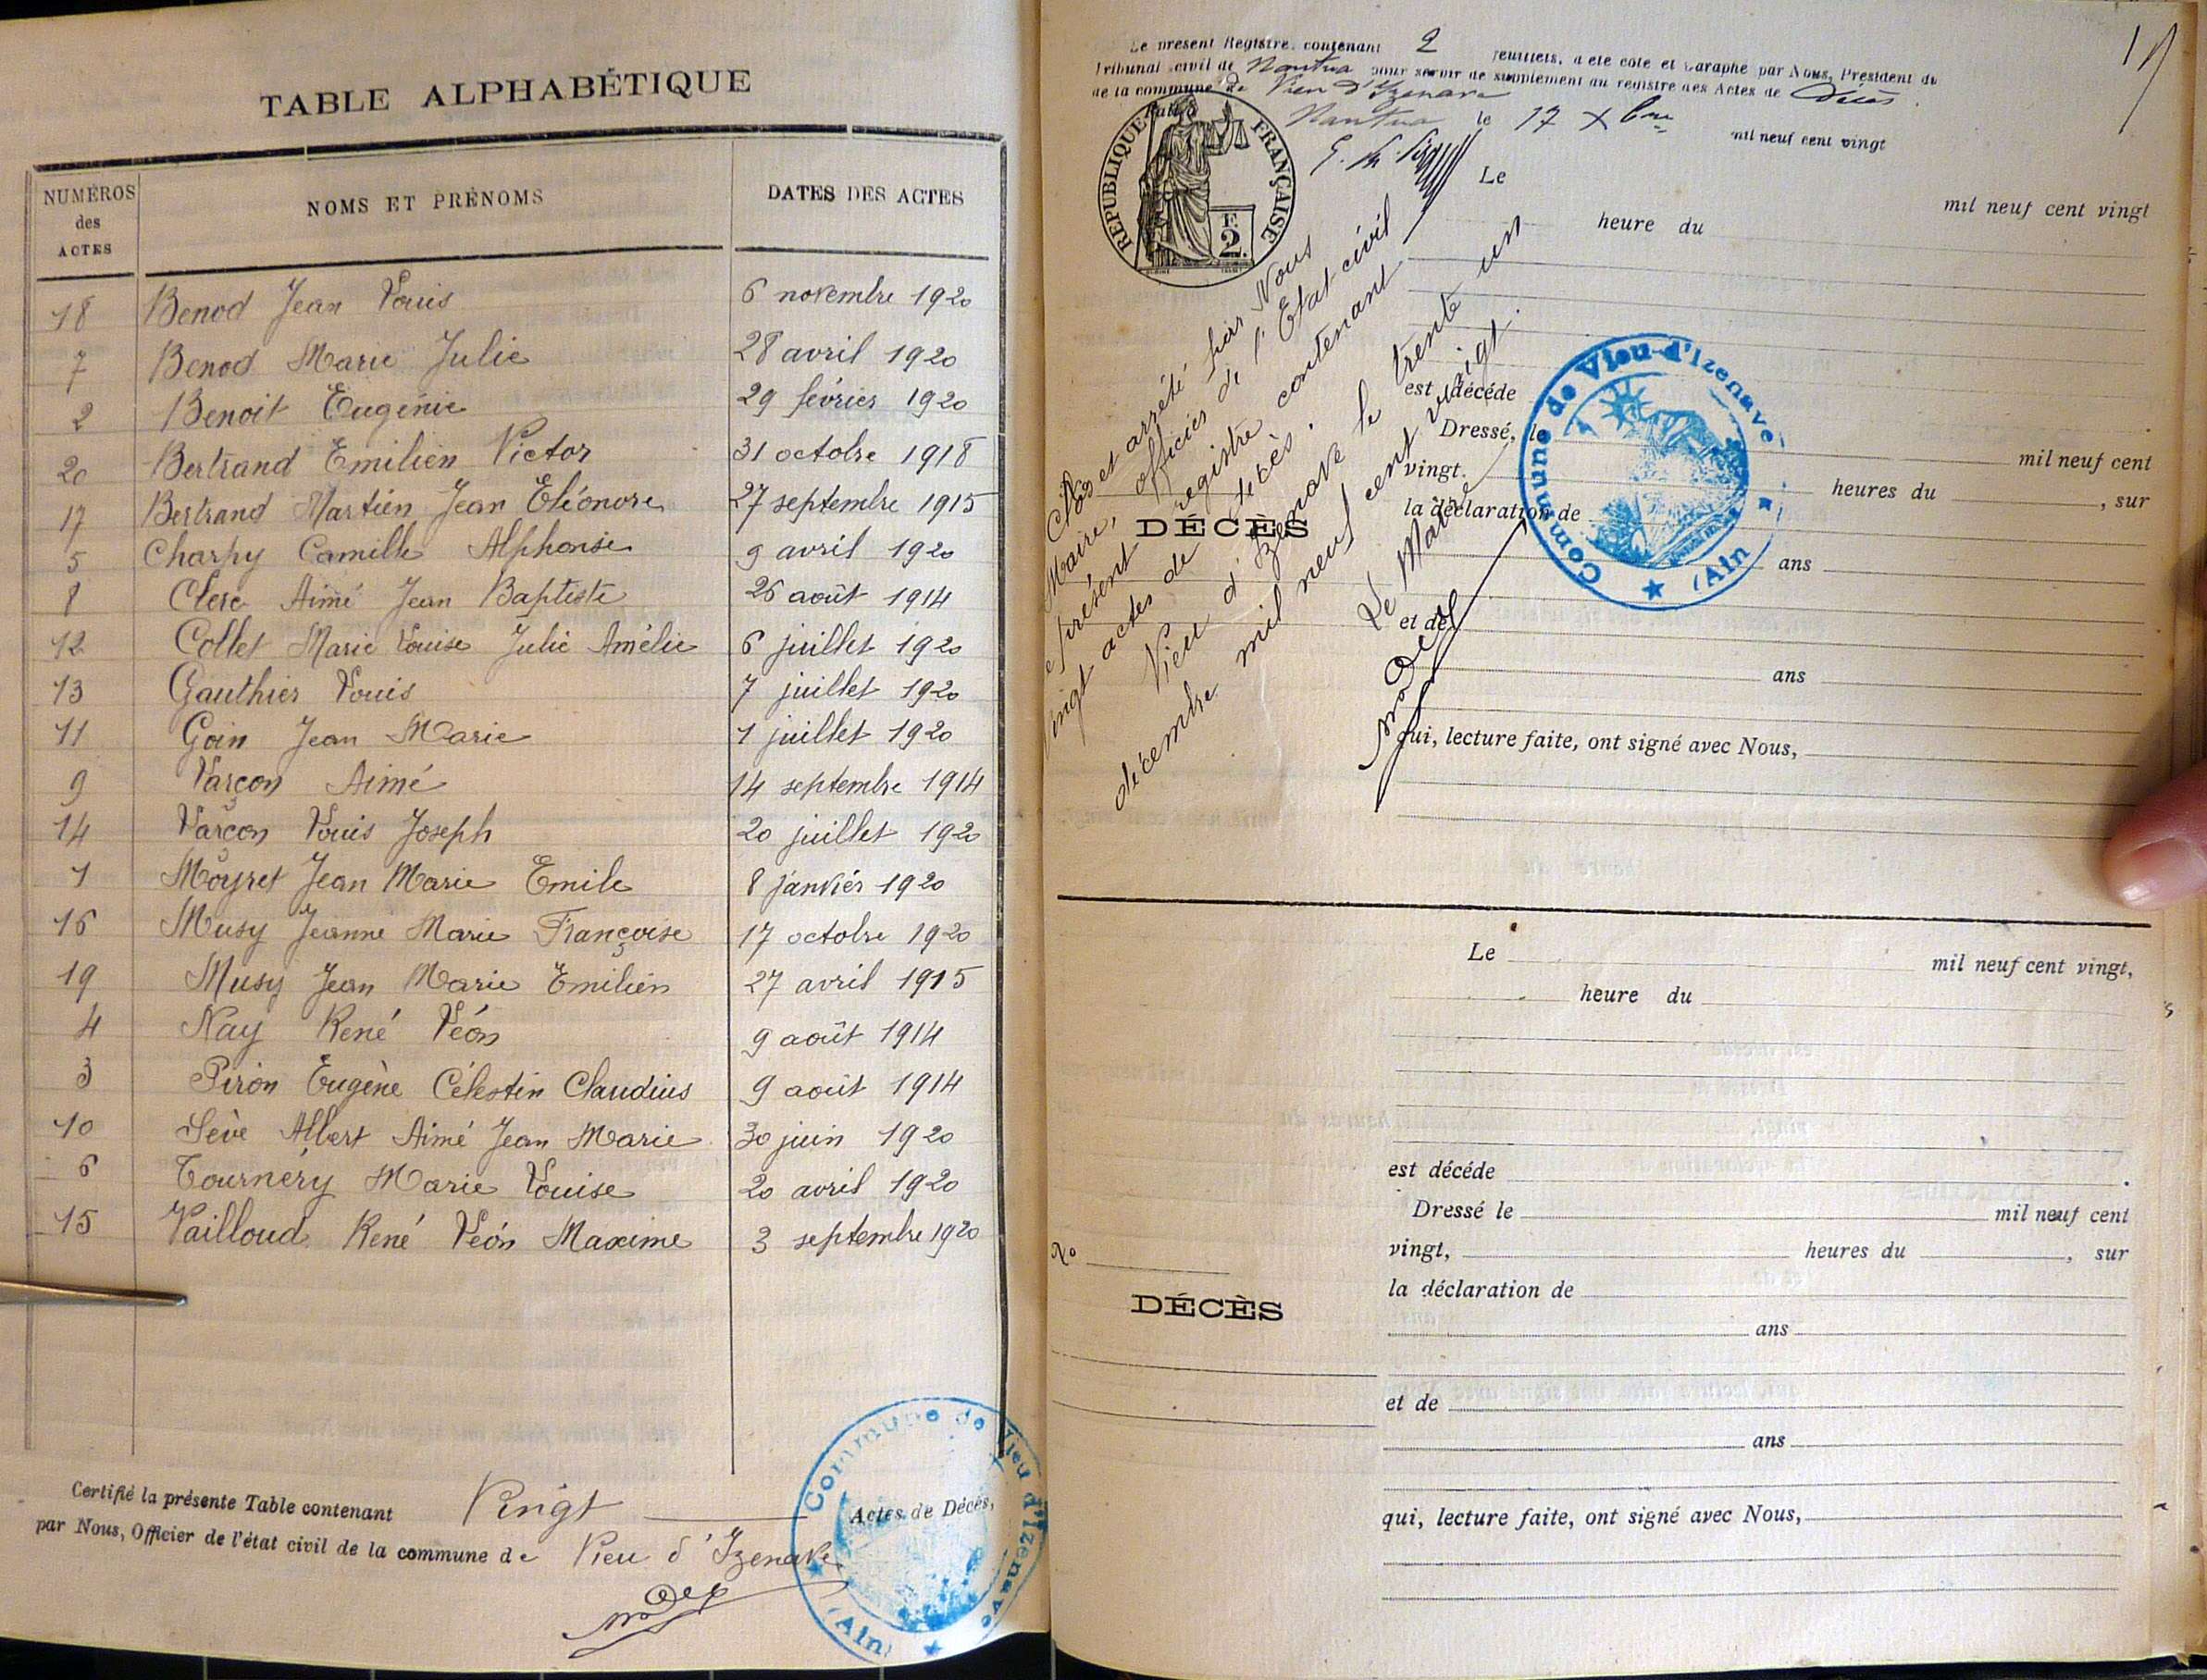 TABLE ALPHABÉTIQUE
NUMÉROS des ACTES NOMS ET PRÉNOMS DATES DES ACTES
18 Benod Jean Louis 6 novembre 1920
7 Benod Marie Julie 28 avril 1920
2 Benoit Eugénie 29 février 1920
20 Bertrand Emilien Victor 31 octobre 1918
17 Bertrand Martien Jean Eléonore 27 septembre 1915
5 Charpy Camille Alphonse 9 avril 1920
8 Clerc Aimé Jean Baptiste 26 août 1914
12 Collet Marie Louise Julie Amélie 6 juillet 1920
13 Gauthier Louis 7 juillet 1920
11 Goin Jean Marie 1 juillet 1920
9 Larçon Aimé 14 septembre 1914
14 Larçon Louis Joseph 20 juillet 1920
1 Moyret Jean Marie Emile 8 janvier 1920
16 Musy Jeanne Marie Françoise 17 octobre 1920
19 Musy Jean Marie Emilien 27 avril 1915
4 Nay René Léon 9 août 1914
3 Piron Eugène Célestin Claudius 9 août 1914
10 Sève Albert Aimé Jean Marie 30 juin 1920
6 Tournéry Marie Louise 20 avril 1920
15 Vailloud René Léon Maxime 3 septembre 1920
Certifié la présente Table contenant Vingt Actes de Décès,
par Nous, Officier de l'état civil de la commune de Vieu d'Izenave
Commune de Vieu d'Izenave (Ain)
Le present Registre, contenant 2 feuillets, a été coté et paraphé par Nous, Président du
Tribunal civil de Nantua pour servir de supplément au registre des Actes de Décès.
de la commune de Vieu d'Izenave
Nantua le 17 Xbre mil neuf cent vingt
RÉPUBLIQUE FRANÇAISE
2
Clos et arrêté par Nous
Maire, officier de l'Etat civil
le présent registre contenant
vingt actes de décès.
Vieu d'Izenave le trente un
décembre mil neuf cent vingt.
Le Maire
Commune de Vieu-d'Izenave (Ain)
Le mil neuf cent vingt
heure du
est décéde
Dressé, le mil neuf cent
vingt, heures du , sur
DÉCÈS
la déclaration de
ans
et de
ans
qui, lecture faite, ont signé avec Nous,
Le mil neuf cent vingt,
heure du
est décéde
Dressé le mil neuf cent
vingt, heures du , sur
No
la déclaration de
DÉCÈS
ans
et de
ans
qui, lecture faite, ont signé avec Nous,